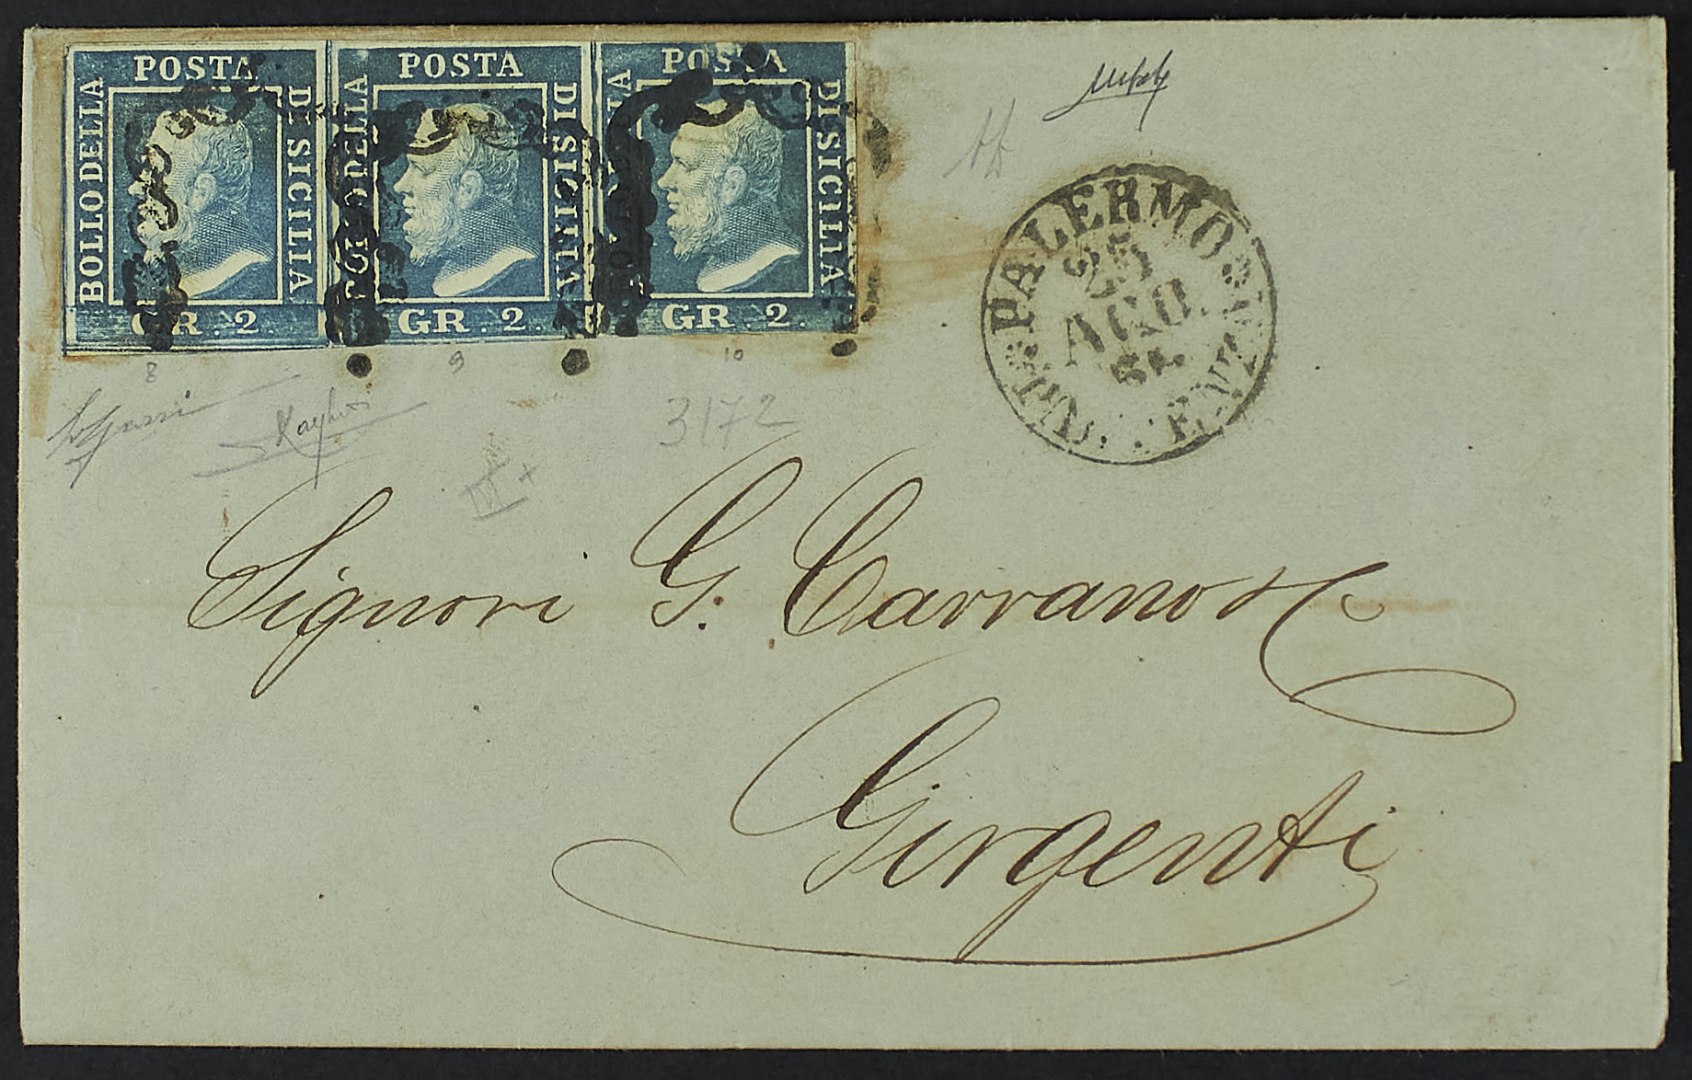 POSTA
BOLLO DELLA
DI SICILIA
GR. 2.
POSTA
BOLLO DELLA
DI SICILIA
GR. 2.
POSTA
DI SICILIA
GR. 2.
8
9
10
PALERMO
25
AGO.
PARTENZA
3172
III+
Signori G. Carrano & C
Girgenti